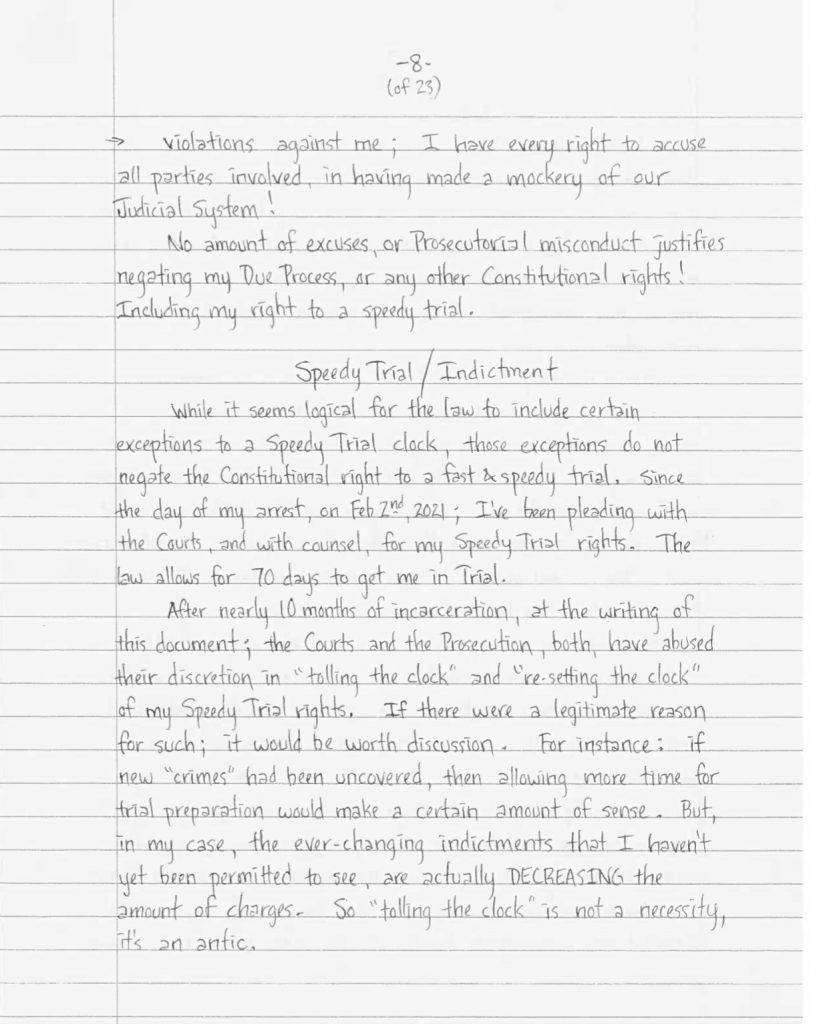 -8-
(of 23)
→ violations against me; I have every right to accuse
all parties involved, in having made a mockery of our
Judicial System!
No amount of excuses, or Prosecutorial misconduct justifies
negating my Due Process, or any other Constitutional rights!
Including my right to a speedy trial.
Speedy Trial/Indictment
While it seems logical for the law to include certain
exceptions to a Speedy Trial clock, those exceptions do not
negate the Constitutional right to a fast & speedy trial. Since
the day of my arrest, on Feb 2nd, 2021; I've been pleading with
the Courts, and with counsel, for my Speedy Trial rights. The
law allows for 70 days to get me in Trial.
After nearly 10 months of incarceration, at the writing of
this document; the Courts and the Prosecution, both, have abused
their discretion in "tolling the clock" and "re-setting the clock"
of my Speedy Trial rights. If there were a legitimate reason
for such; it would be worth discussion. For instance: if
new "crimes" had been uncovered, then allowing more time for
trial preparation would make a certain amount of sense. But,
in my case, the ever-changing indictments that I haven't
yet been permitted to see, are actually DECREASING the
amount of charges. So "tolling the clock" is not a necessity,
it's an antic.